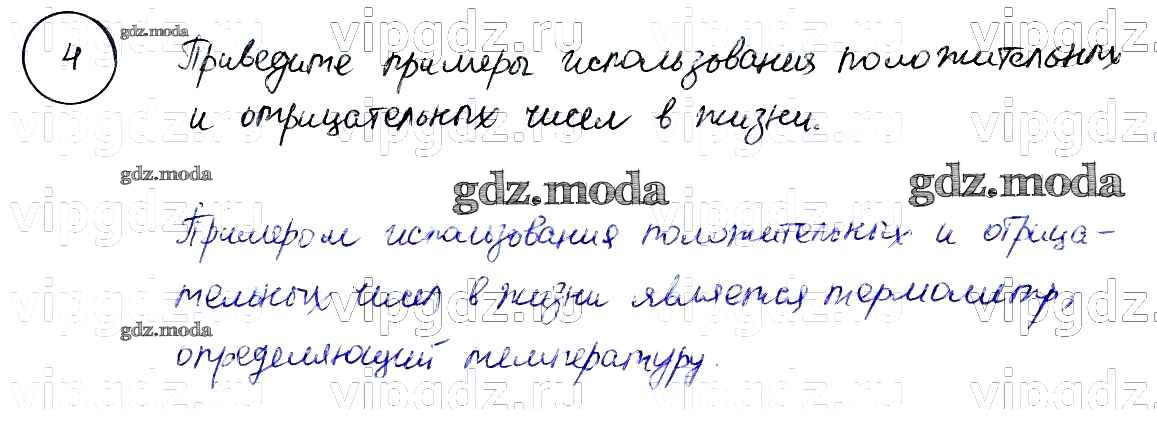 4
gdz.moda
Приведите примеры использования положительных
и отрицательных чисел в жизни.
gdz.moda
gdz.moda
gdz.moda
Примером использования положительных и отрица-
тельных чисел в жизни является термометр,
gdz.moda
определяющий температуру.
vipgdz.ru vipgdz.ru vipgdz.ru